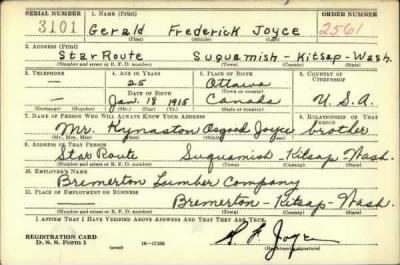 SERIAL NUMBER 1. NAME (Print) ORDER NUMBER
3101 Gerald Frederick Joyce 2561
(First) (Middle) (Last)
2. ADDRESS (Print)
Star Route Suquamish - Kitsap - Wash.
(Number and street or R. F. D. number) (Town) (County) (State)
3. TELEPHONE 4. AGE IN YEARS 5. PLACE OF BIRTH 6. COUNTRY OF CITIZENSHIP
— 25 Ottawa
DATE OF BIRTH (Town or county)
— Jan. 18 1915 Canada U.S.A.
(Exchange) (Number) (Mo.) (Day) (Yr.) (State or country)
7. NAME OF PERSON WHO WILL ALWAYS KNOW YOUR ADDRESS 8. RELATIONSHIP OF THAT PERSON
Mr. Kynaston Osgood Joyce brother
(Mr., Mrs., Miss) (First) (Middle) (Last)
9. ADDRESS OF THAT PERSON
Star Route Suquamish - Kitsap - Wash.
(Number and street or R. F. D. number) (Town) (County) (State)
10. EMPLOYER'S NAME
Bremerton Lumber Company
11. PLACE OF EMPLOYMENT OR BUSINESS
Bremerton - Kitsap - Wash.
(Number and street or R. F. D. number) (Town) (County) (State)
I AFFIRM THAT I HAVE VERIFIED ABOVE ANSWERS AND THAT THEY ARE TRUE.
REGISTRATION CARD
D. S. S. Form 1 (over) Joyce
(Registrant's signature)